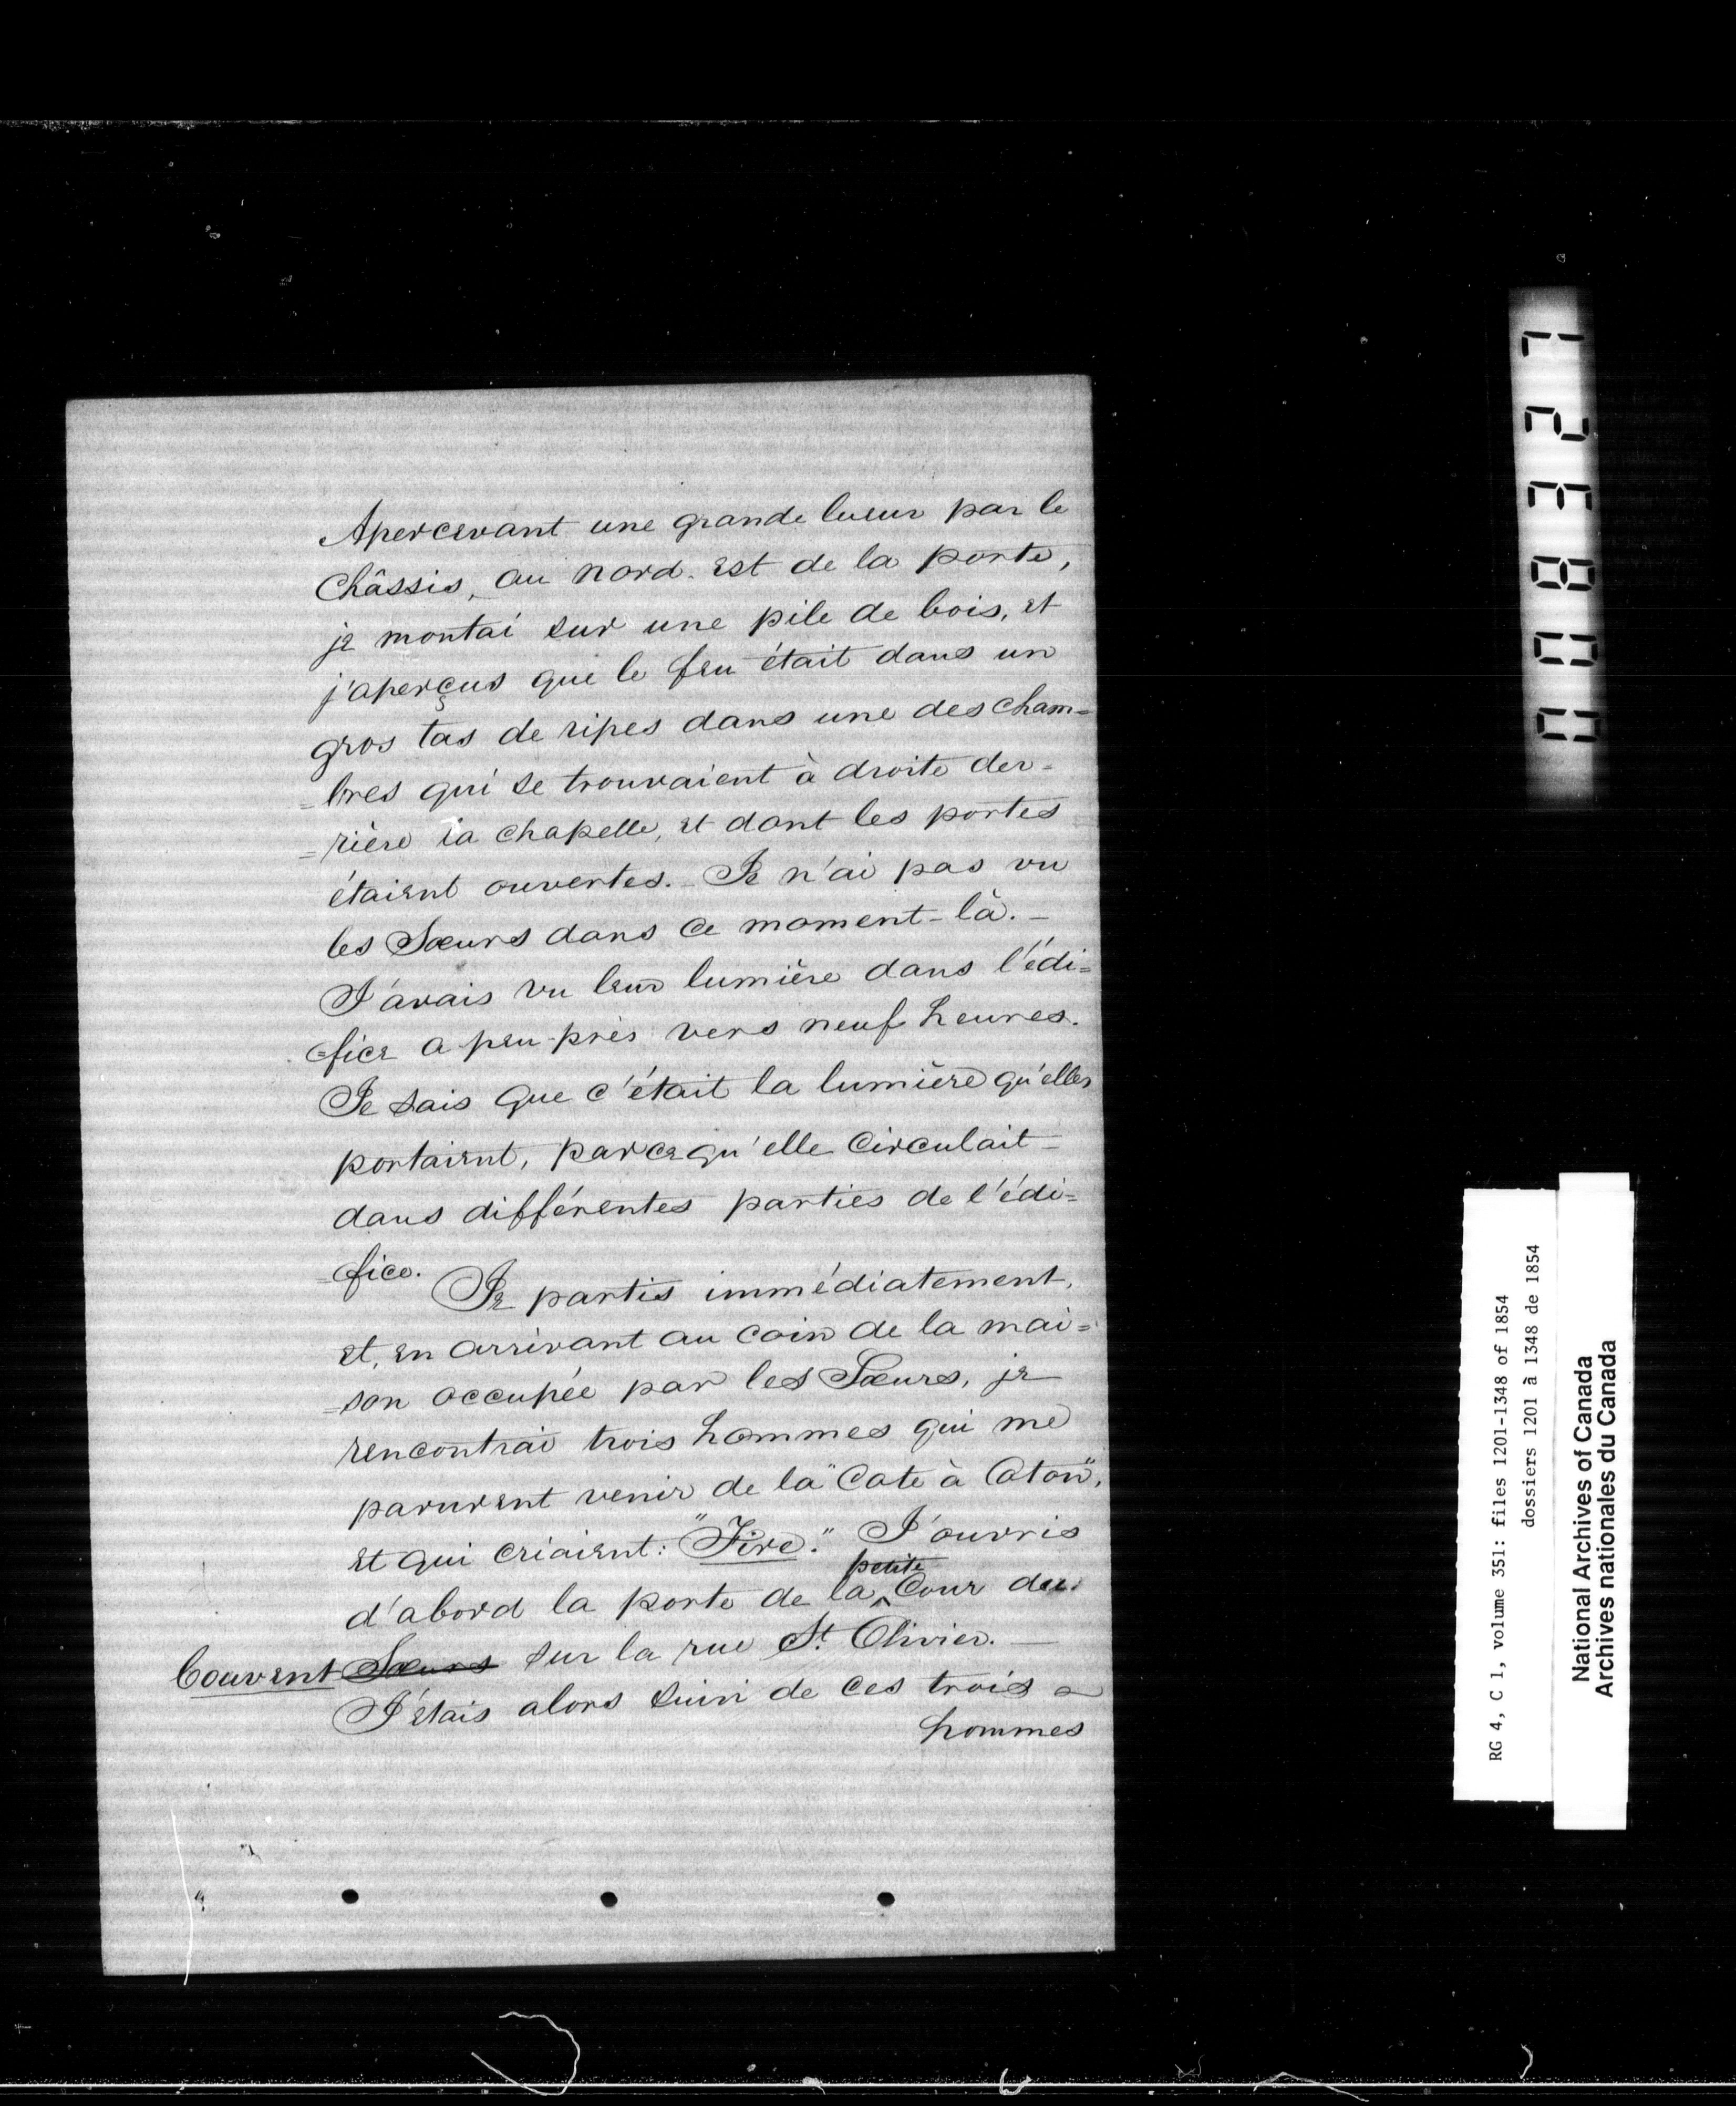 Apercevant une grande lueur par le
Châssis, au nord-est de la porte,
je montai sur une pile de bois, et
j'aperçus que le feu était dans un
gros tas de ripes dans une des cham=
=bres qui se trouvaient à droite der=
=rière la chapelle, et dont les portes
étaient ouvertes. - Je n'ai pas vu
les Sœurs dans ce moment-là. -
J'avais vu leur lumière dans l'édi=
=fice a peu-près vers neuf heures.
Je sais que c'était la lumière qu'elles
portaient, parcequ'elle circulait
dans différentes parties de l'édi=
=fice.
Je partis immédiatement,
et, en arrivant au coin de la mai=
=son occupée par les Sœurs, je
rencontrai trois hommes qui me
parurent venir de la "Cote à Coton",
et qui criaient: "Fire." J'ouvris
petite
d'abord la porte de la Cour du
Couvent Sœurs sur la rue St. Olivier. -
J'étais alors suivi de ces trois
hommes
123800
RG 4, C 1, volume 351: files 1201-1348 of 1854
dossiers 1201 à 1348 de 1854
National Archives of Canada
Archives nationales du Canada